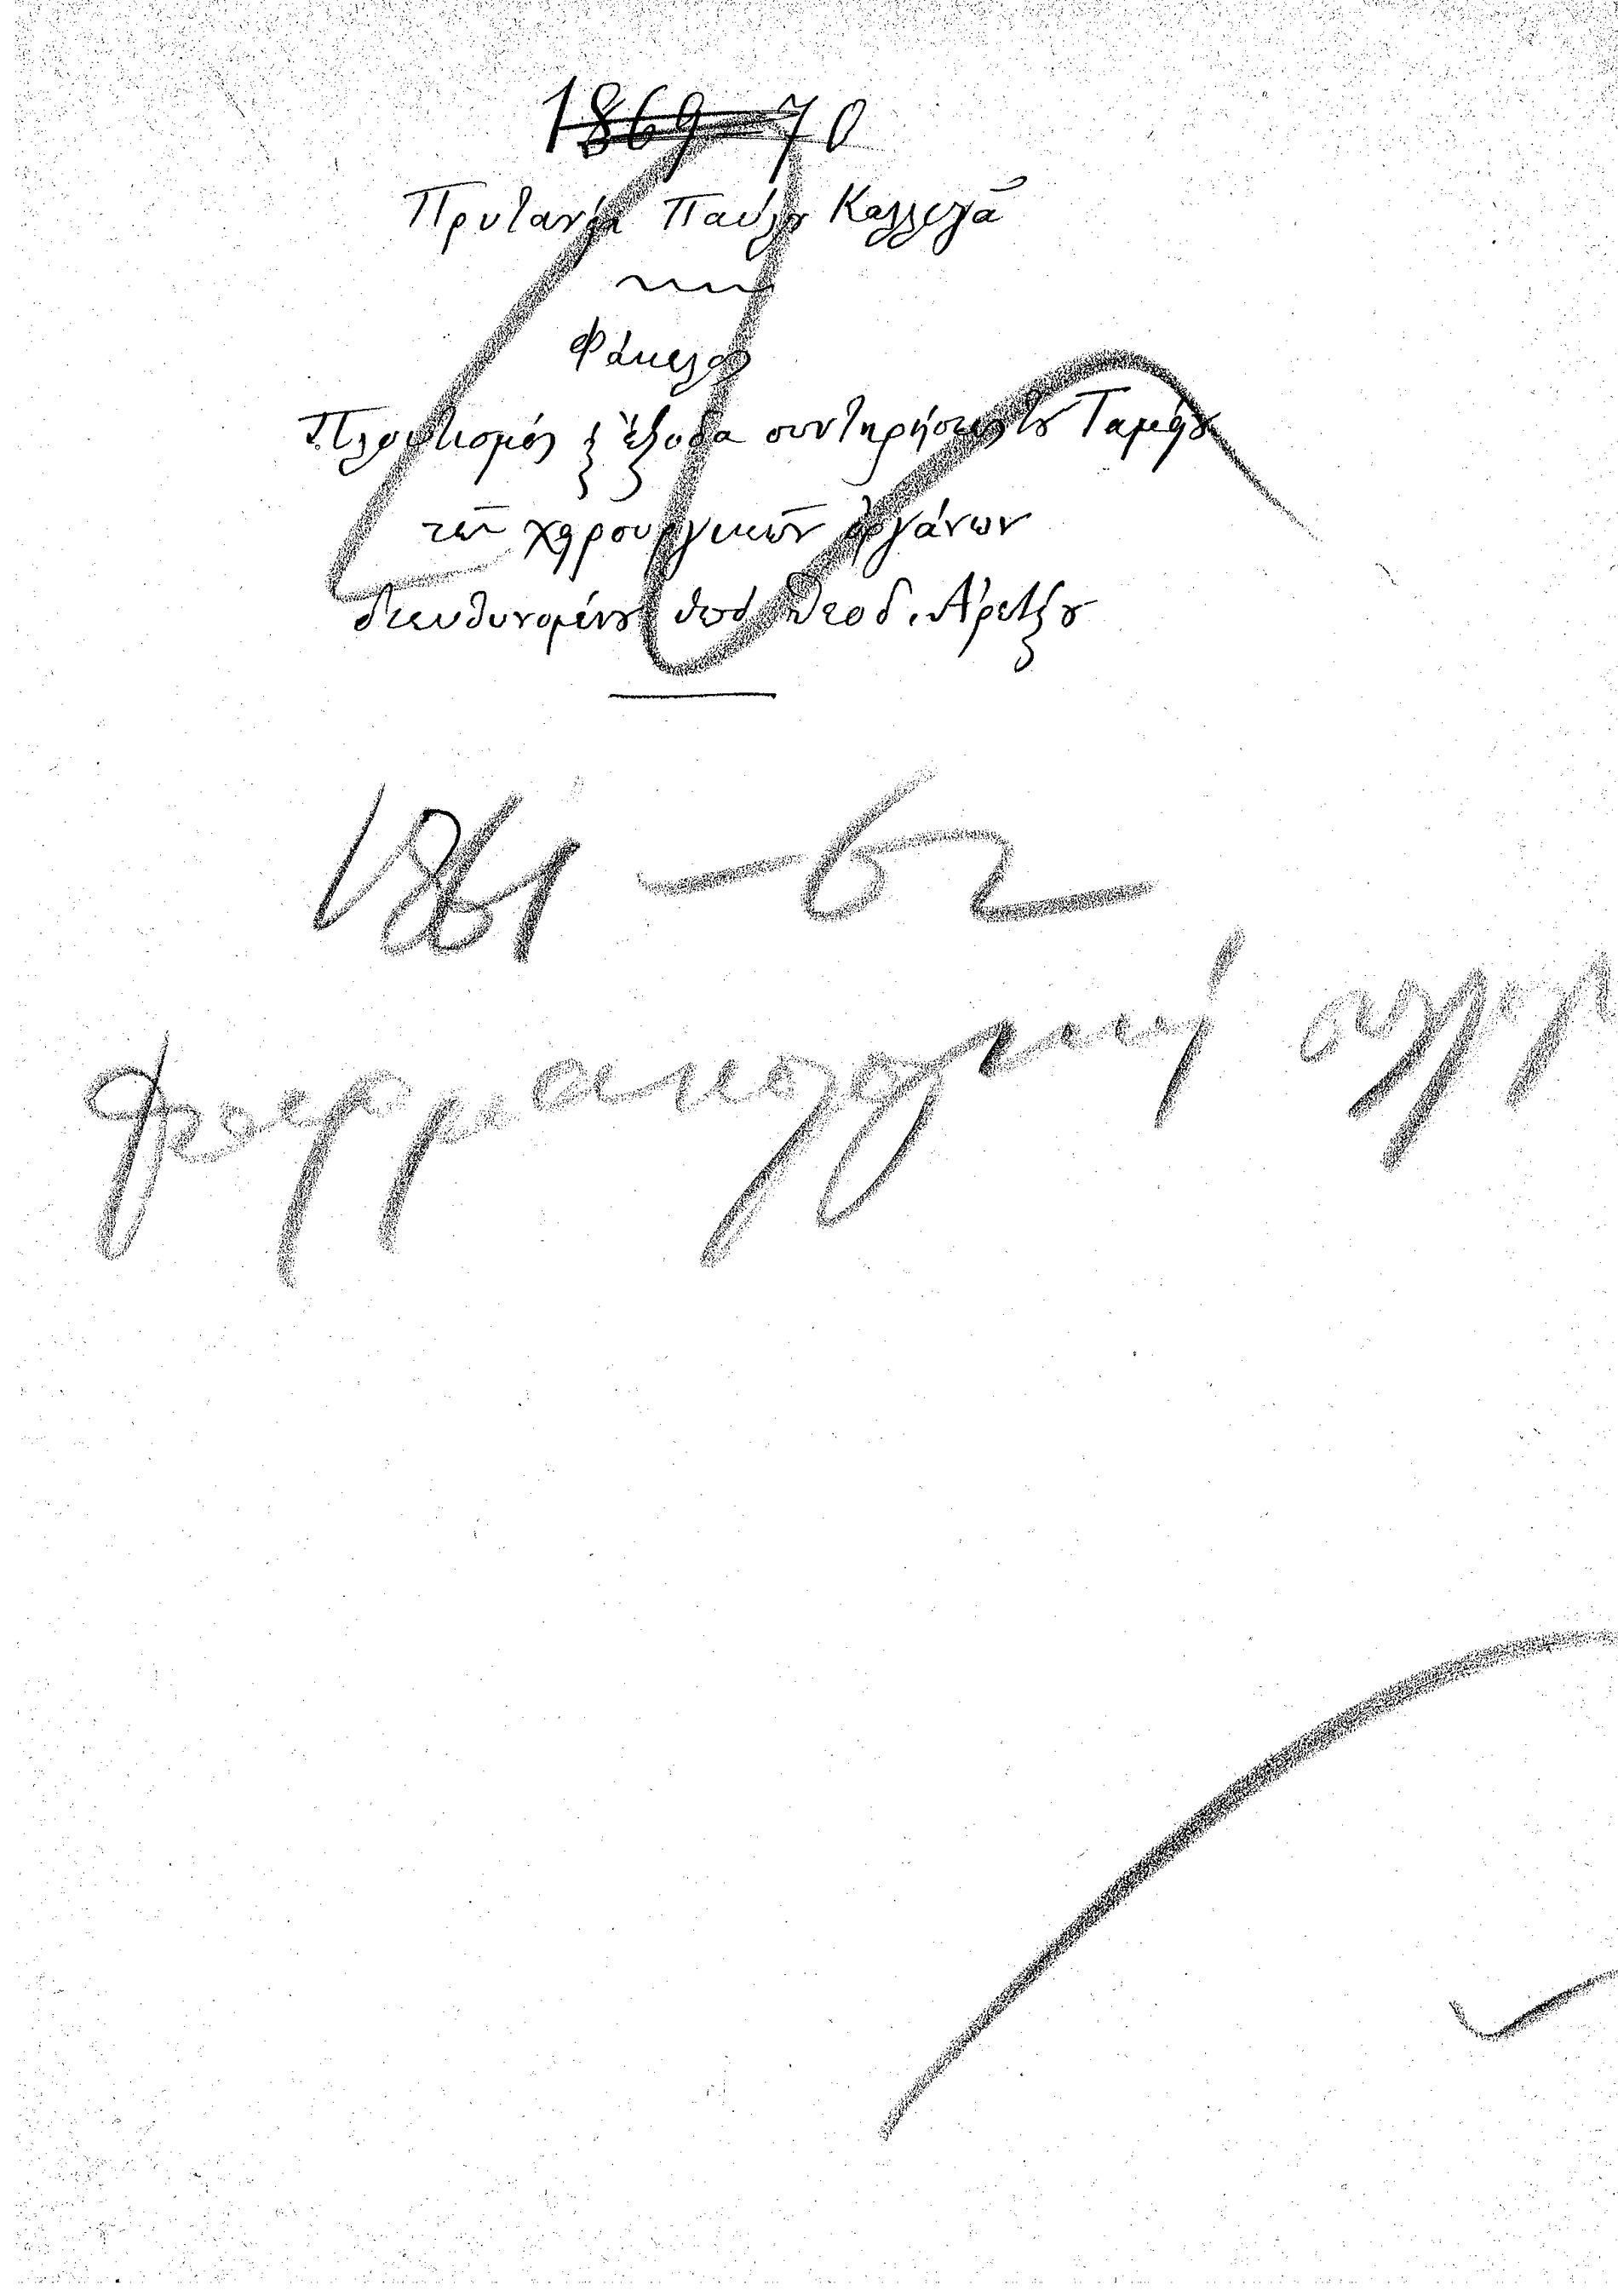 1869-70
Πρυτανεία Παύλου Καλλιγᾶ
Φάκελος
Πλουτισμός & ἔξοδα συντηρήσεως τοῦ Ταμείου
τῶν χειρουργικῶν ὀργάνων
διευθυνομένου ὑπό Θεοδ. Ἀρεταίου
1861-62
Φαρμακολογική συλλογ